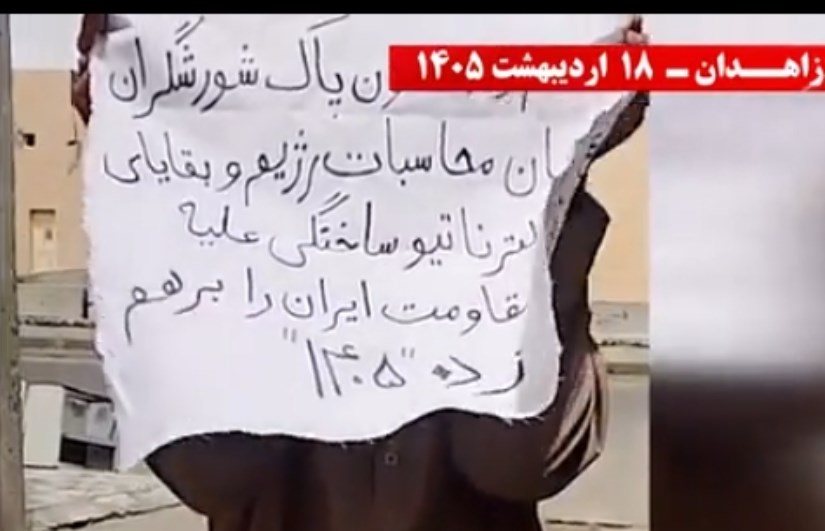 زاهدان ـ ۱۸ اردیبهشت ۱۴۰۵
پاک شورشگران
محاسبات رژیم و بقایای
ساختگی علیه
ایران را برهم
زده "۱۴۰۵"